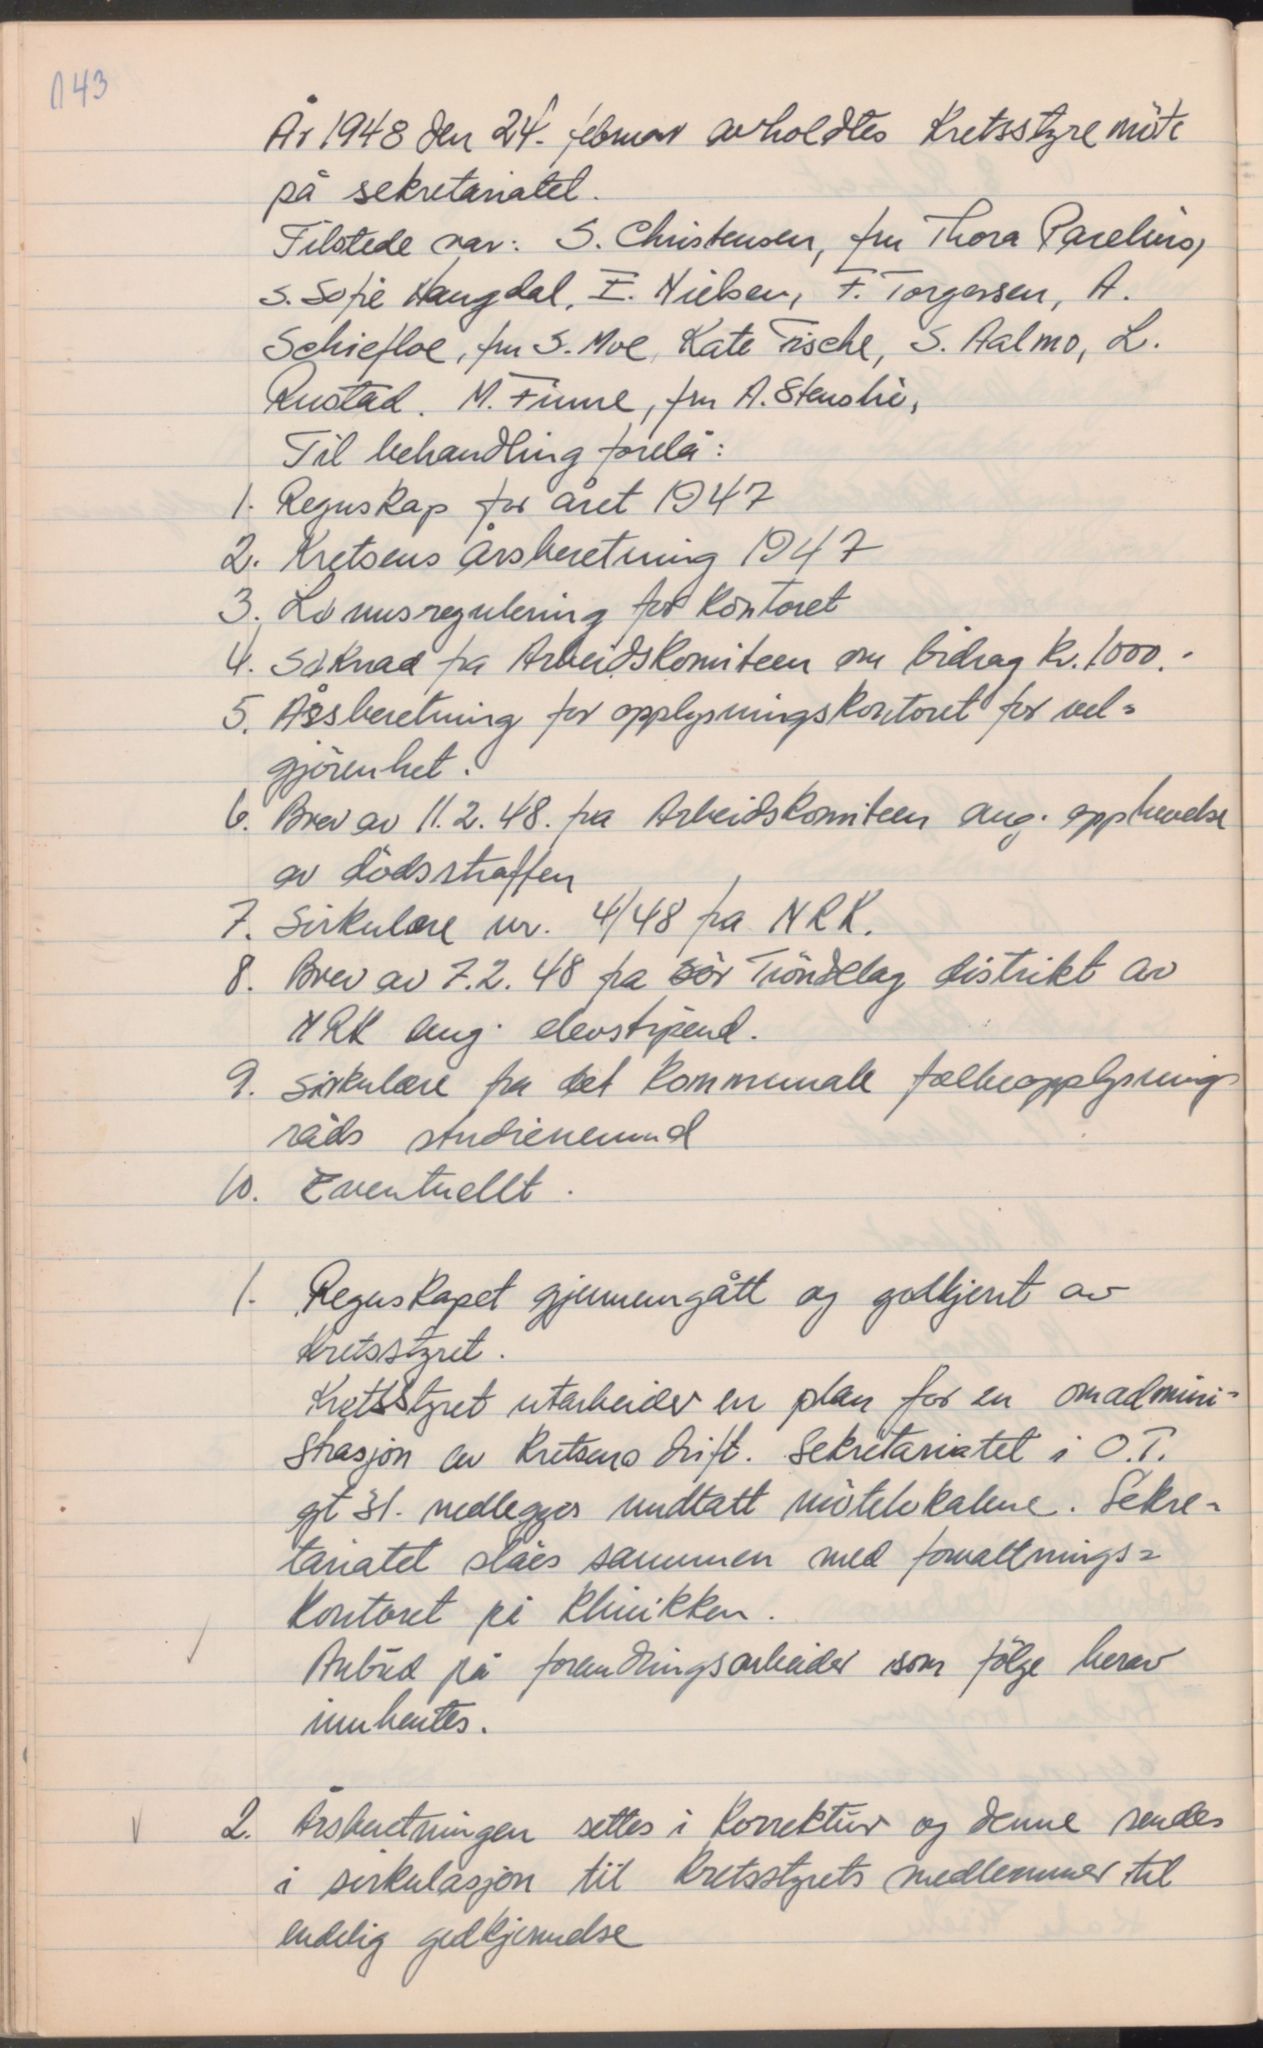 143
År 1948 den 24. februar avholdtes Kretsstyremöte
på sekretariatet.
Tilstede var: S. Christensen, fru Thora Parelius,
S. Sofie Haugdal, I. Nielsen, F. Torgersen, A.
Schiefloe, fru S. Moe, Kate Fische, S. Aalmo, L.
Rustad. M. Finne, fru A. Stenshie,
Til behandling forelå:
1. Regnskap for året 1947
2. Kretsens Årsberetning 1947
3. Lönnsregulering for Kontoret
4. Söknad fra Arbeidskomiteen om bidrag kr. 1000.-
5. Årsberetning for opplysningskontoret for vel=
gjörenhet.
6. Brev av 11.2.48. fra Arbeidskomiteen ang. opphevelse
av dödsstraffen
7. Sirkulære nr. 4/48 fra NRK.
8. Brev av 7.2.48 fra Sör Tröndelag distrikt av
NRK ang. elevstipend.
9. Sirkulære fra det Kommunale folkeopplysnings
råds studienemnd
10. Eventuellt.
1. Regnskapet gjennemgått og godkjent av
Kretsstyret.
Kretsstyret utarbeider en plan for en omadmini=
strasjon av Kretsens drift. Sekretariatet i O.T.
gt 31. nedlegges undtatt mötelokalene. Sekre=
tariatet slåes sammen med forvaltnings=
Kontoret på Klinikken.
Anbud på forandringsarbeider som fölge herav
innhentes.
2. Årsberetningen settes i Korrektur og denne sendes
i sirkulasjon til Kretsstyrets medlemmer til
endelig godkjennelse